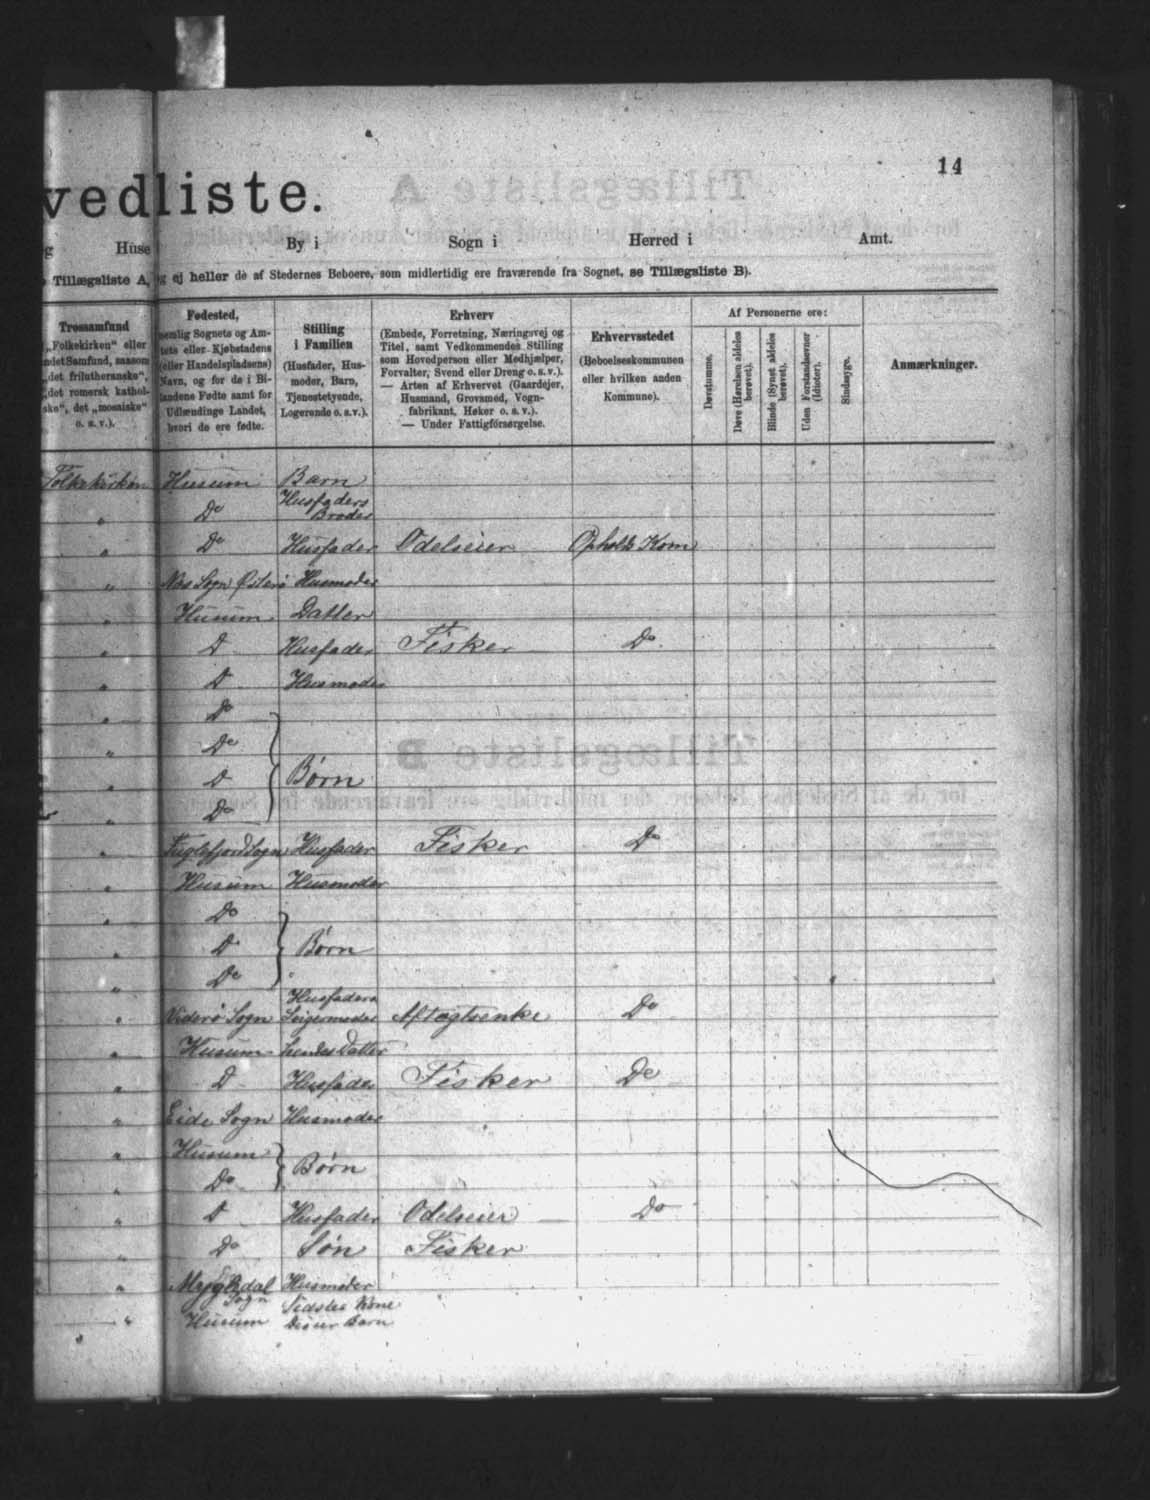 14
vedliste.
g Huse By i Sogn i Herred i Amt.
Tillægsliste A, g ej heller de af Stedernes Beboere, som midlertidig ere fraværende fra Sognet, se Tillægsliste B).
Trossamfund
„Folkekirken“ eller
ndet Samfund, saasom
„det frilutheranske“,
„det romersk kathol-
ske“, det „mosaiske“
o. s. v.).
Fødested,
nemlig Sognets og Am-
tets eller Kjøbstadens
(eller Handelspladsens)
Navn, og for de i Bi-
landene Fødte samt for
Udlændinge Landet,
hvori de ere fødte.
Stilling
i Familien
(Husfader, Hus-
moder, Barn,
Tjenestetyende,
Logerende o. s. v.).
Erhverv
(Embede, Forretning, Næringsvej og
Titel, samt Vedkommendes Stilling
som Hovedperson eller Medhjælper,
Forvalter, Svend eller Dreng o. s. v.).
— Arten af Erhvervet (Gaardejer,
Husmand, Grovsmed, Vogn-
fabrikant, Høker o. s. v.).
— Under Fattigforsørgelse.
Erhvervsstedet
(Beboelseskommunen
eller hvilken anden
Kommune).
Af Personerne ere:
Døvstumme.
Døve (Hørelsen aldeles
berøvet).
Blinde (Synet aldeles
berøvet).
Uden Forstandsevner
(Idioter).
Sindssyge.
Anmærkninger.
Folkekirken Husum Barn
" Do Husfaders
Broder
" Do Husfader Odelseier Opholds Kom
" Næs Sogn Østerø Husmoder
" Husum Datter
" D Husfader Fisker Do
" D Husmoder
" Do
" Do
" D Børn
" Do
" Fuglefjord Sogn Husfader Fisker Do
" Husum Husmoder
" Do
" D Børn
" Do
Husfaders
" Viderø Sogn Svigermoder Aftægtsenke Do
" Husum hendes Datter
" D Husfader Fisker Do
" Eide Sogn Husmoder
" Husum
Børn
" Do
" D Husfader Odelseier Do
" Do Søn Fisker
" Mygledal Husmoder
Sogn Sidstes Kone
" Husum Barn